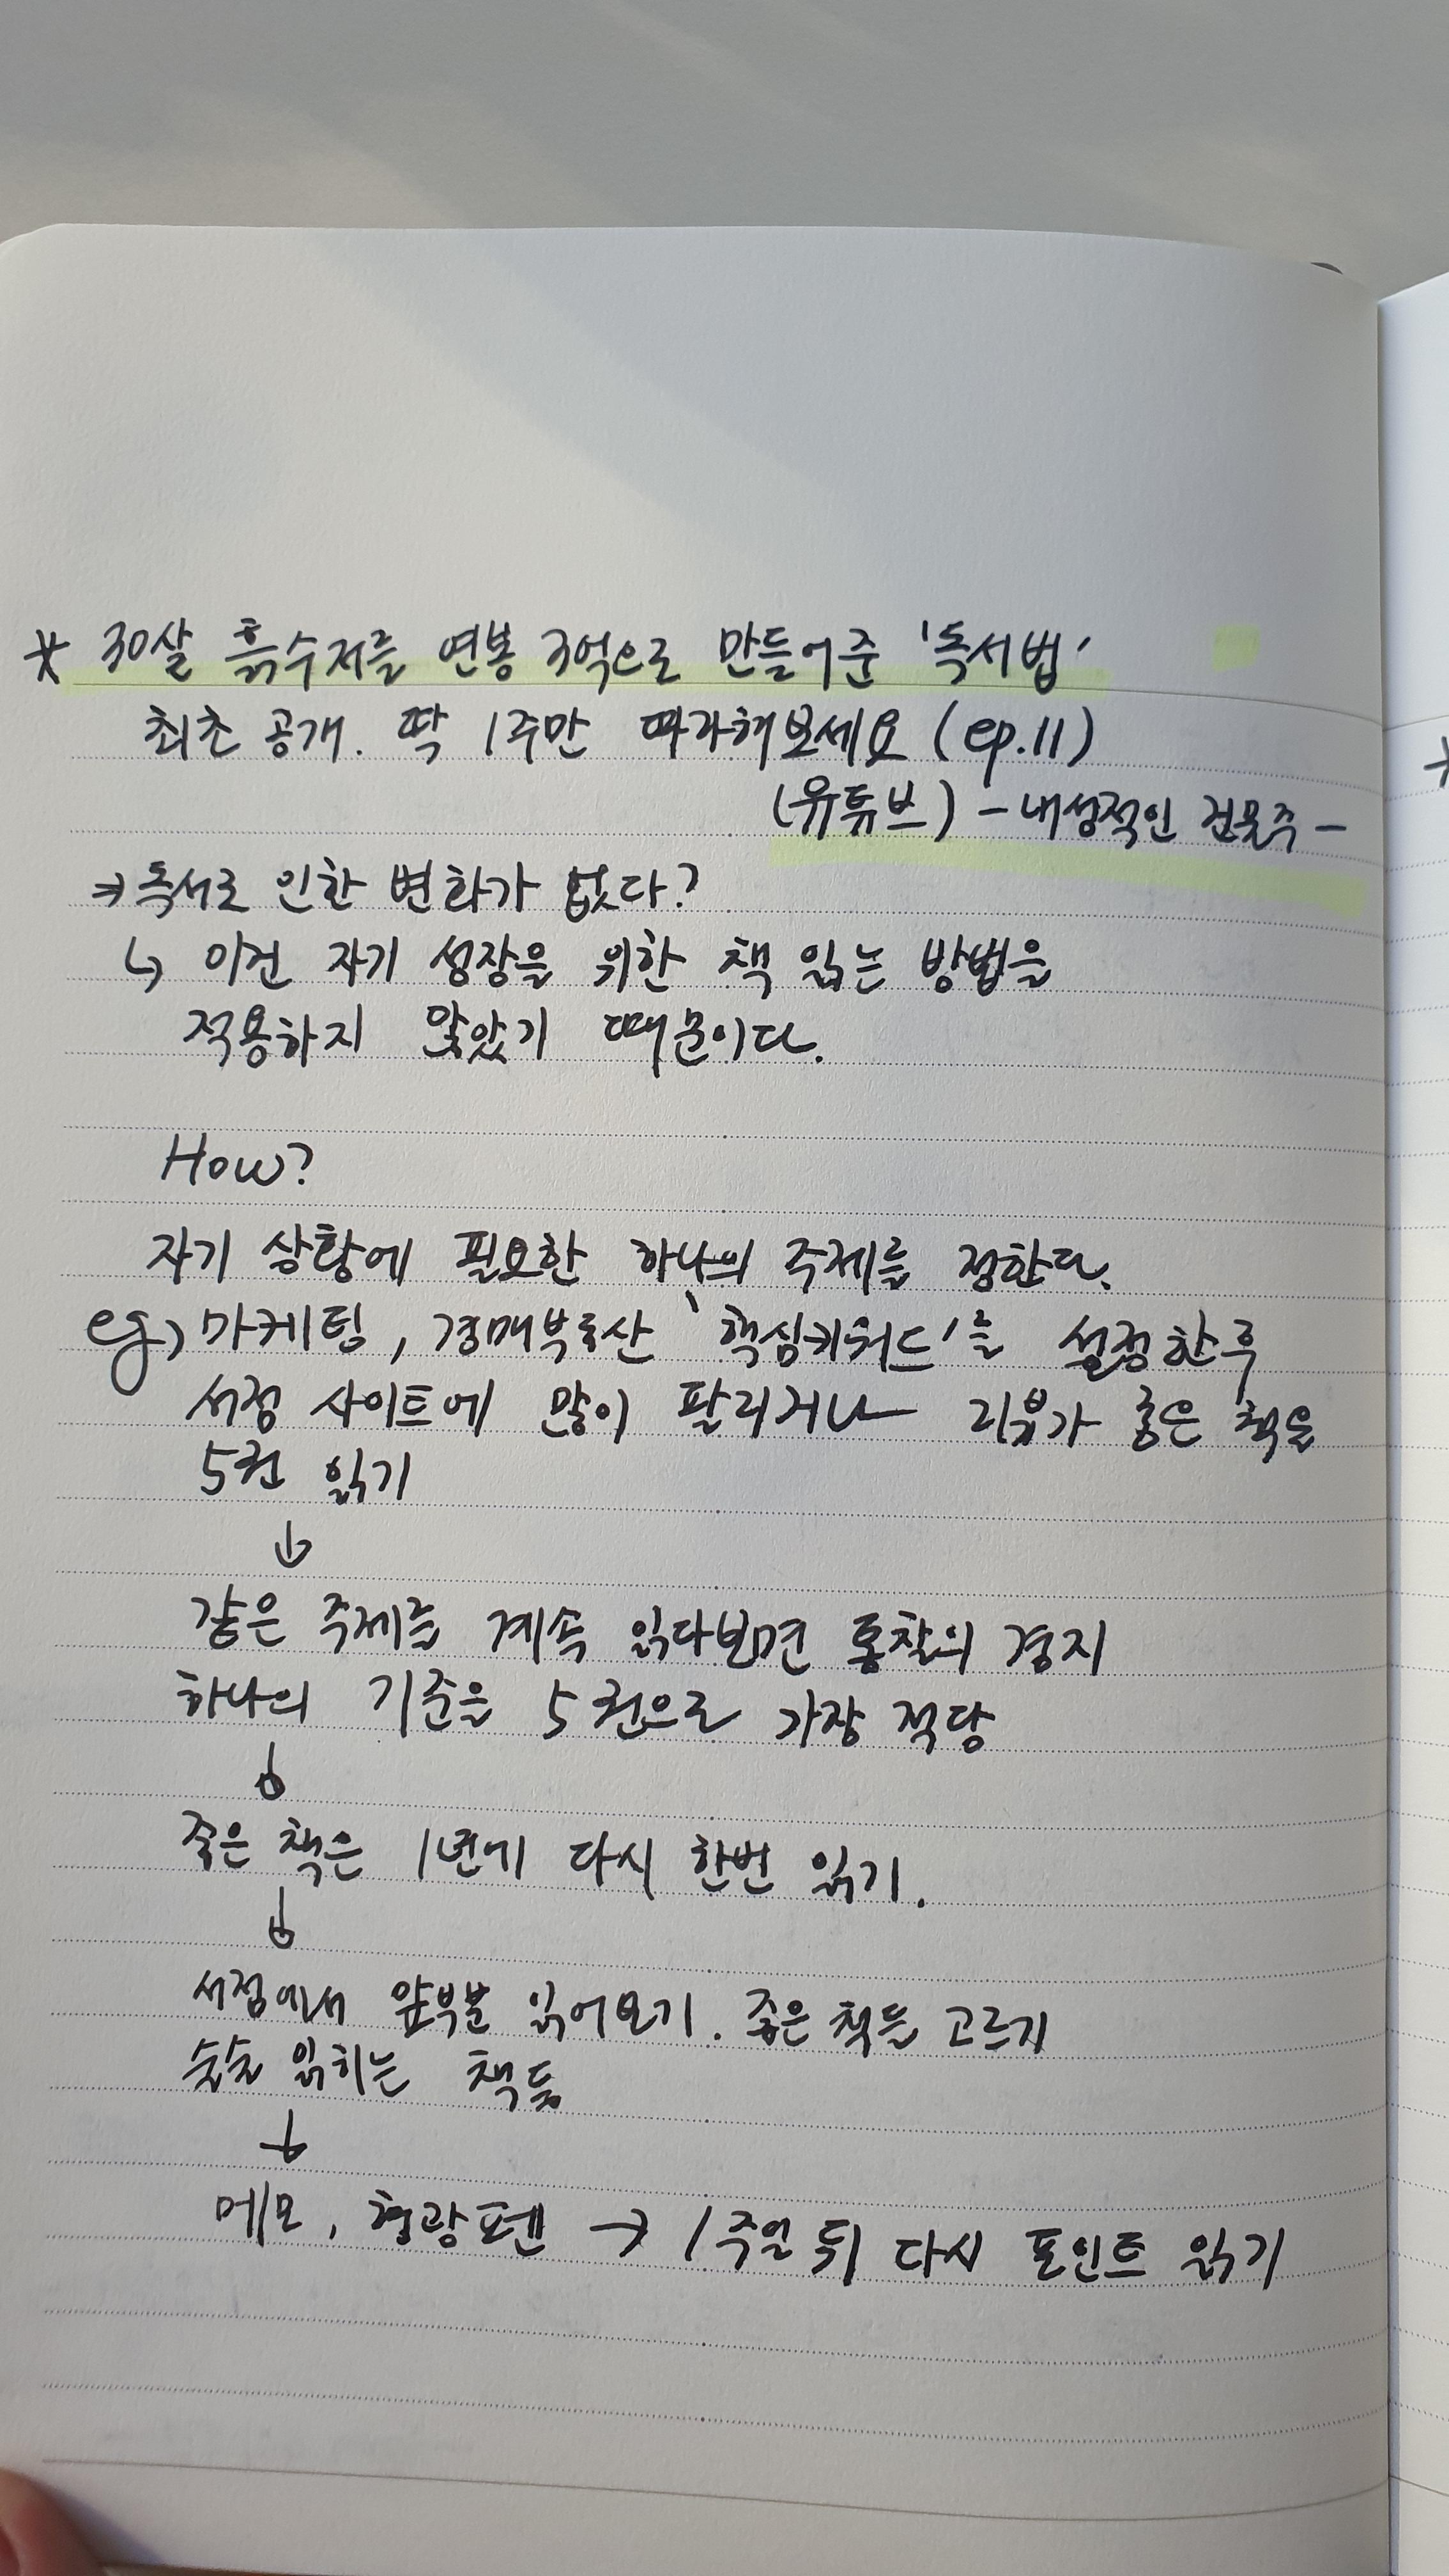 * 30살 흙수저를 연봉 3억으로 만들어준 '독서법'
최초 공개. 딱 1주만 따라해보세요 (ep.11)
(유튜브) - 내성적인 건물주 -
⇒ 독서로 인한 변화가 없다?
↳ 이건 자기 성장을 위한 책 읽는 방법을
적용하지 않았기 때문이다.
How?
자기 상황에 필요한 하나의 주제를 정한다.
eg) 마케팅, 경매부동산 '핵심키워드'를 설정한 후
서점 사이트에 많이 팔리거나 리뷰가 좋은 책을
5권 읽기
↓
같은 주제를 계속 읽다보면 통찰의 경지
하나의 기준을 5권으로 가장 적당
↓
좋은 책은 1년에 다시 한번 읽기.
↓
서점에서 앞부분 읽어보기. 좋은 책들 고르기
술술 읽히는 책들
↓
메모, 형광펜 → 1주일 뒤 다시 포인트 읽기